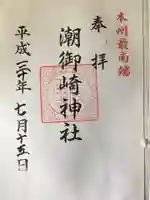 本州最南端
奉拝
潮御崎神社
平成二十年七月十五日